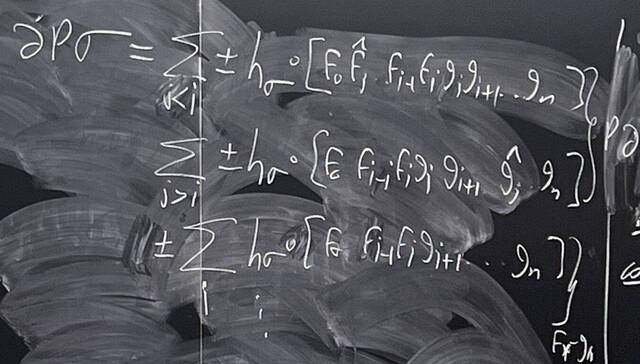 ∂Pσ = ∑ ± h_σ∘[f₀ f̂_j f_{i-1} f_i g_i g_{i+1} .. g_n]
j<i
∑ ± h_σ∘[f₀ f_{i-1} f_i g_i g_{i+1} ĝ_j g_n]
j>i
± ∑ h_σ∘[f₀ f_{i-1} f_i g_{i+1} ... g_n]
i